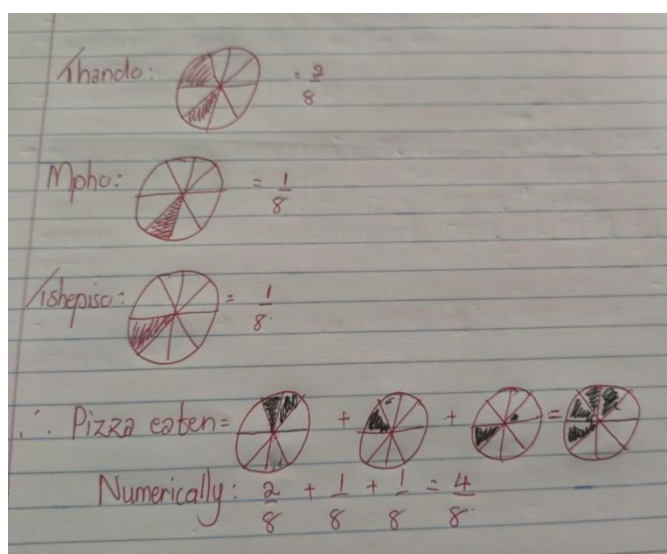 Thando: = 2/8
Mpho: = 1/8
Tshepiso: = 1/8.
∴ Pizza eaten = + + =
Numerically: 2/8 + 1/8 + 1/8 = 4/8.